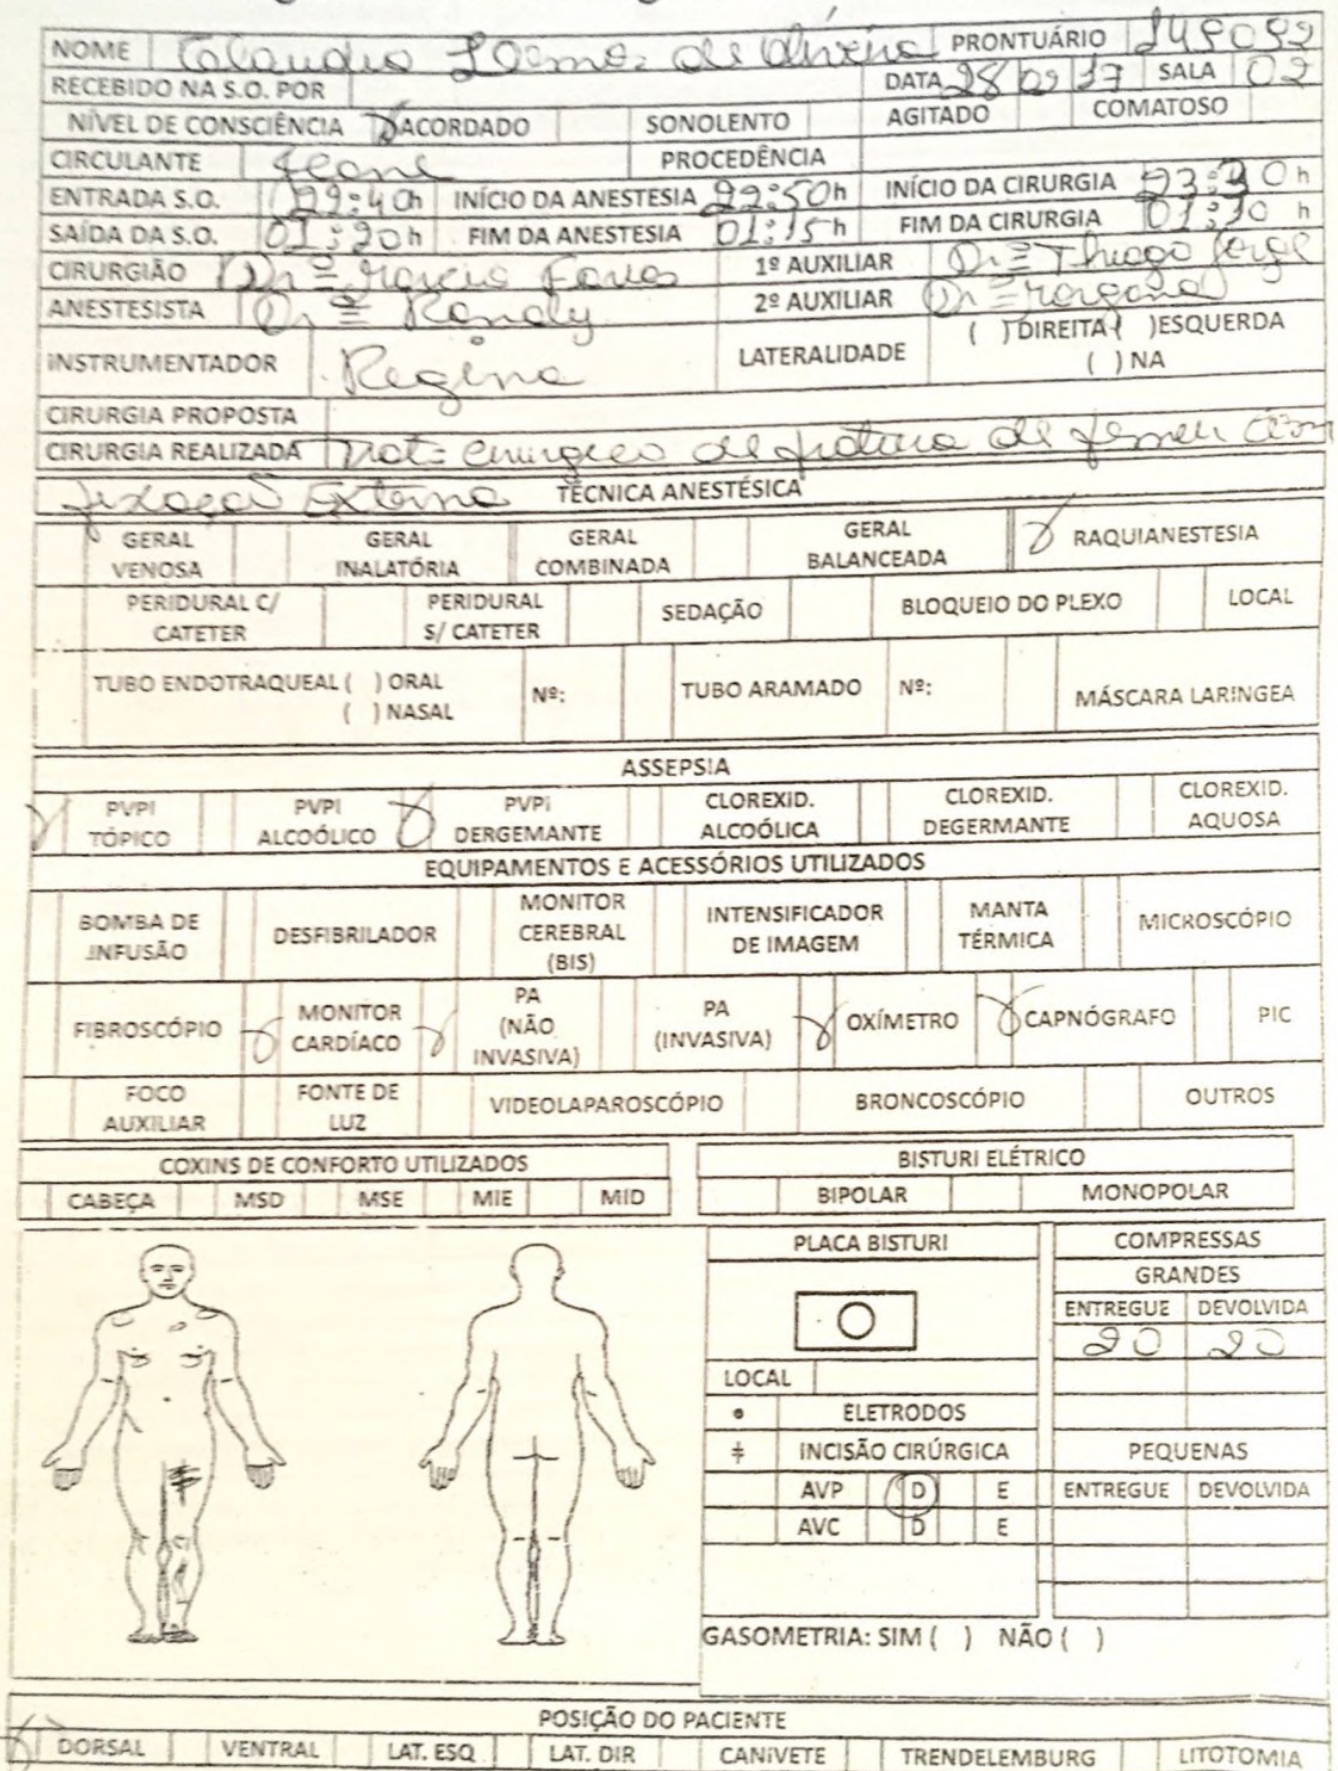 NOME Claudio Lemos de Oliveira PRONTUÁRIO
RECEBIDO NA S.O. POR DATA 28 02 17 SALA 02
NÍVEL DE CONSCIÊNCIA ACORDADO SONOLENTO AGITADO COMATOSO
CIRCULANTE PROCEDÊNCIA
ENTRADA S.O. 22:40h INÍCIO DA ANESTESIA 22:50h INÍCIO DA CIRURGIA h
SAÍDA DA S.O. 01:20h FIM DA ANESTESIA 01:15h FIM DA CIRURGIA 01:10 h
CIRURGIÃO Drº 1º AUXILIAR Drº Thiago Jorge
ANESTESISTA Drº Randy 2º AUXILIAR Drº
INSTRUMENTADOR Regina LATERALIDADE ( ) DIREITA ( )ESQUERDA
( ) NA
CIRURGIA PROPOSTA
CIRURGIA REALIZADA Trat: cirurgico de fratura de femur com
fixação Externa TÉCNICA ANESTÉSICA
GERAL VENOSA GERAL INALATÓRIA GERAL COMBINADA GERAL BALANCEADA RAQUIANESTESIA
PERIDURAL C/ CATETER PERIDURAL S/ CATETER SEDAÇÃO BLOQUEIO DO PLEXO LOCAL
TUBO ENDOTRAQUEAL ( ) ORAL Nº: TUBO ARAMADO Nº: MÁSCARA LARINGEA
( ) NASAL
ASSEPSIA
PVPI TÓPICO PVPI ALCOÓLICO PVPI DERGEMANTE CLOREXID. ALCOÓLICA CLOREXID. DEGERMANTE CLOREXID. AQUOSA
EQUIPAMENTOS E ACESSÓRIOS UTILIZADOS
BOMBA DE INFUSÃO DESFIBRILADOR MONITOR CEREBRAL (BIS) INTENSIFICADOR DE IMAGEM MANTA TÉRMICA MICROSCÓPIO
FIBROSCÓPIO MONITOR CARDÍACO PA (NÃO INVASIVA) PA (INVASIVA) OXÍMETRO CAPNÓGRAFO PIC
FOCO AUXILIAR FONTE DE LUZ VIDEOLAPAROSCÓPIO BRONCOSCÓPIO OUTROS
COXINS DE CONFORTO UTILIZADOS BISTURI ELÉTRICO
CABEÇA MSD MSE MIE MID BIPOLAR MONOPOLAR
PLACA BISTURI COMPRESSAS
GRANDES
ENTREGUE DEVOLVIDA
20 20
LOCAL
ELETRODOS
INCISÃO CIRÚRGICA PEQUENAS
AVP D E ENTREGUE DEVOLVIDA
AVC D E
GASOMETRIA: SIM ( ) NÃO ( )
POSIÇÃO DO PACIENTE
DORSAL VENTRAL LAT. ESQ LAT. DIR CANIVETE TRENDELEMBURG LITOTOMIA